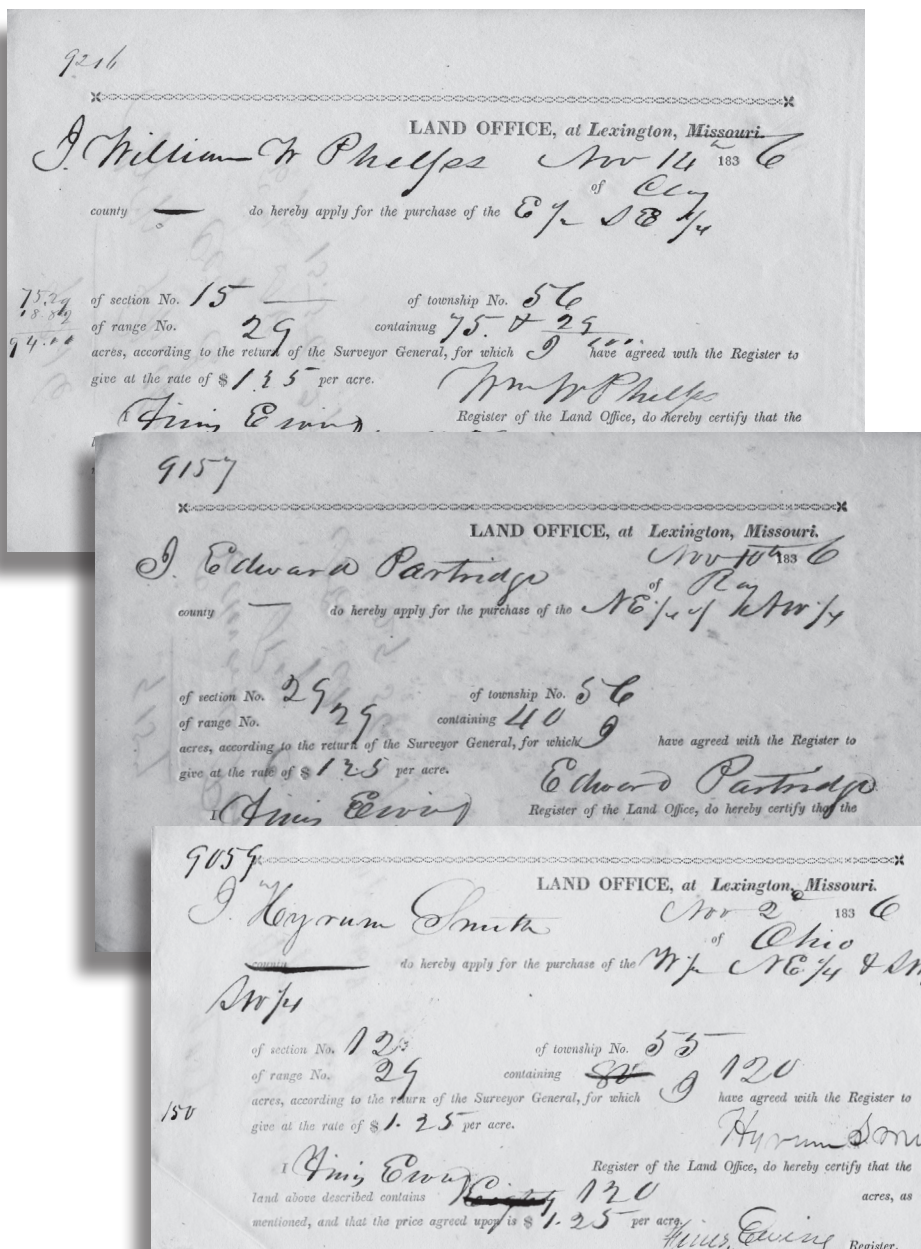 9216
LAND OFFICE, at Lexington, Missouri.
I William W Phelps Nov 14th 1836
of Clay
county do hereby apply for the purchase of the E 1/2 SE 1/4
of section No. 15 of township No. 56
75.29
18.82
94.11
of range No. 29 containing 75. & 29/100
acres, according to the return of the Surveyor General, for which I have agreed with the Register to
give at the rate of $ 1 25 per acre. Wm W Phelps
Finis Ewing Register of the Land Office, do hereby certify that the
9157
LAND OFFICE, at Lexington, Missouri.
I Edward Partridge Nov 10th 1836
of Ray
county do hereby apply for the purchase of the NE 1/4 of NW 1/4
of section No. 29 of township No. 56
of range No. 29 containing 40
acres, according to the return of the Surveyor General, for which I have agreed with the Register to
give at the rate of $ 1 25 per acre. Edward Partridge
I Finis Ewing Register of the Land Office, do hereby certify that the
9059
LAND OFFICE, at Lexington, Missouri.
I Hyrum Smith Nov 2d 1836
of Ohio
county do hereby apply for the purchase of the W 1/2 NE 1/4 &
SW 1/4
of section No. 12 of township No. 55
of range No. 29 containing 80 120
acres, according to the return of the Surveyor General, for which I have agreed with the Register to
150
give at the rate of $ 1.25 per acre. Hyrum Smi
I Finis Ewing Register of the Land Office, do hereby certify that the
land above described contains Eighty 120 acres, as
mentioned, and that the price agreed upon is $ 1.25 per acre.
Finis Ewing Register.